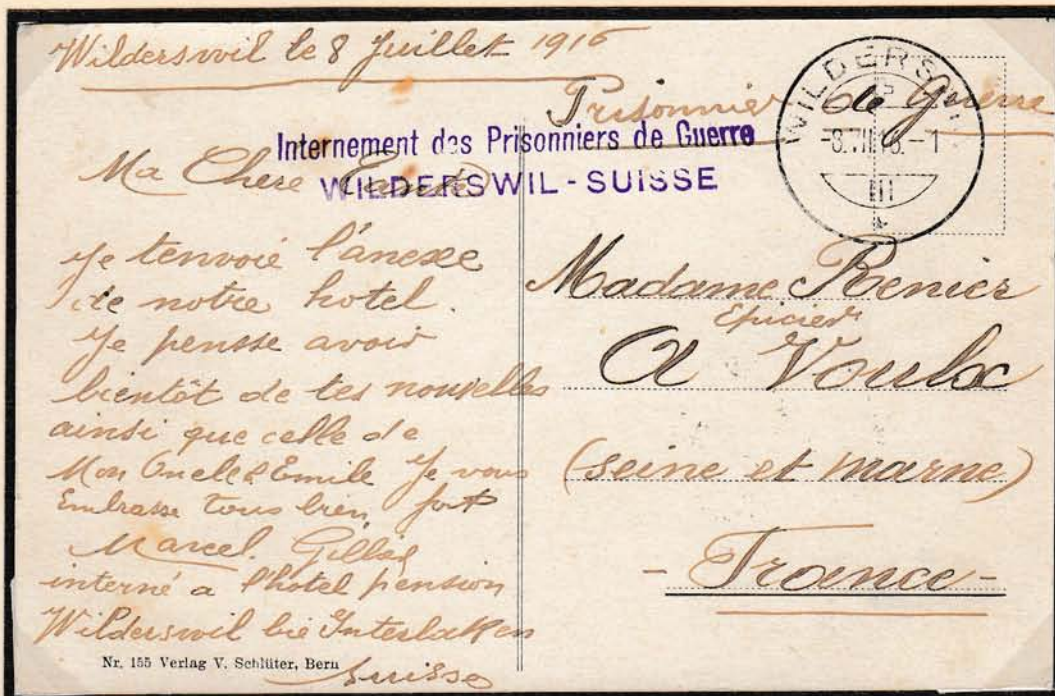 Wilderswil le 8 Juillet 1916
Prisonnier de Guerre
Internement des Prisonniers de Guerre
WILDERSWIL - SUISSE
WILDERSWIL
-8.VII.16.-1
III
Ma Chere Tante
Je tenvoie l'anexe
de notre hotel.
Je pensse avoir
bientôt de tes nouvelles
ainsi que celle de
Mon Oncle Emile Je vous
Embrasse Tous bien fort
Marcel Gilles
interné a l'hôtel pension
Wilderswil bie Interlaken
Suisse
Madame Renier
Epicier
A Voulx
(seine et marne)
- France -
Nr. 155 Verlag V. Schlüter, Bern